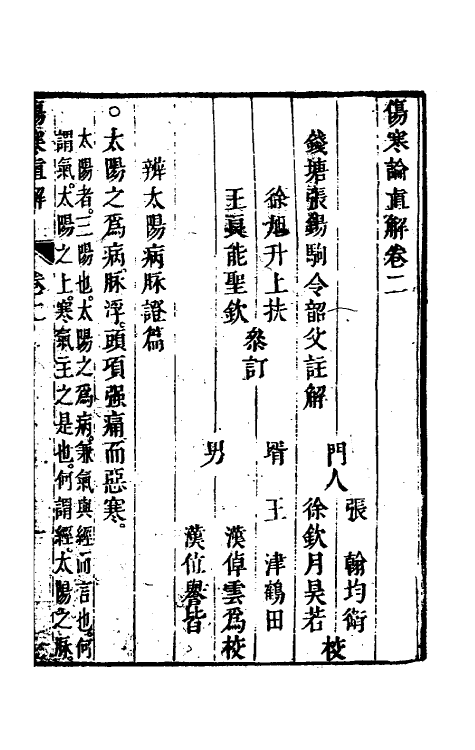 傷寒論直解卷二
錢塘張錫駒令韶父註解
徐旭升上扶
王真能聖欽
叅訂
門人
張　翰均衡
徐欽月昊若
校
壻　王　津鶴田
男
漢倬雲為校
漢位譽皆
辨太陽病脉證篇
○太陽之為病脉浮頭項强痛而惡寒
太陽者三陽也太陽之為病兼氣與經而言也何
謂氣太陽之上寒氣主之是也何謂經太陽之脉
傷寒直解
卷二